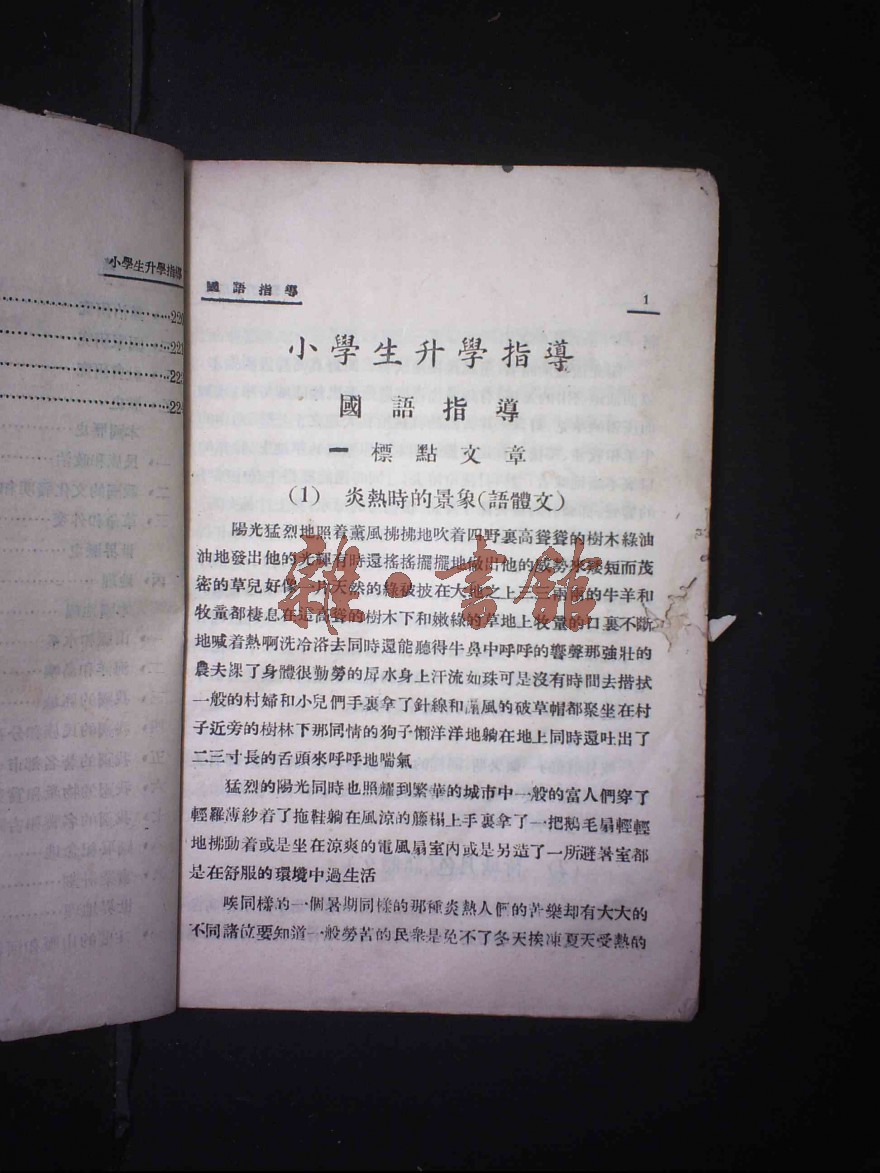 小學生升學指導
220
221
國語指導
1
小學生升學指導
國語指導
一標點文章
(1) 炎熱時的景象(語體文)
陽光猛烈地照着薰風拂拂地吹着四野裏高聳聳的樹木綠油
油地發出他的光輝有時還搖搖擺擺地做出他的威勢來矮短而茂
密的草兒好像一片天然的綠被披在大地之上三三兩兩的牛羊和
牧童都棲息在這高聳的樹木下和嫩綠的草地上牧童的口裏不斷
地喊着熱啊洗冷浴去同時還能聽得牛鼻中呼呼的響聲那強壯的
農夫裸了身體很勤勞的戽水身上汗流如珠可是沒有時間去揩拭
一般的村婦和小兒們手裏拿了針線和滿風的破草帽都聚坐在村
子近旁的樹林下那同情的狗子懶洋洋地躺在地上同時還吐出了
二三寸長的舌頭來呼呼地喘氣
猛烈的陽光同時也照耀到繁華的城市中一般的富人們穿了
輕羅薄紗着了拖鞋躺在風涼的籐榻上手裏拿了一把鵝毛扇輕輕
地拂動着或是坐在涼爽的電風扇室內或是另造了一所避暑室都
是在舒服的環境中過生活
唉同樣的一個暑期同樣的那種炎熱人們的苦樂却有大大的
不同諸位要知道一般勞苦的民衆是免不了冬天挨凍夏天受熱的
雜·書館